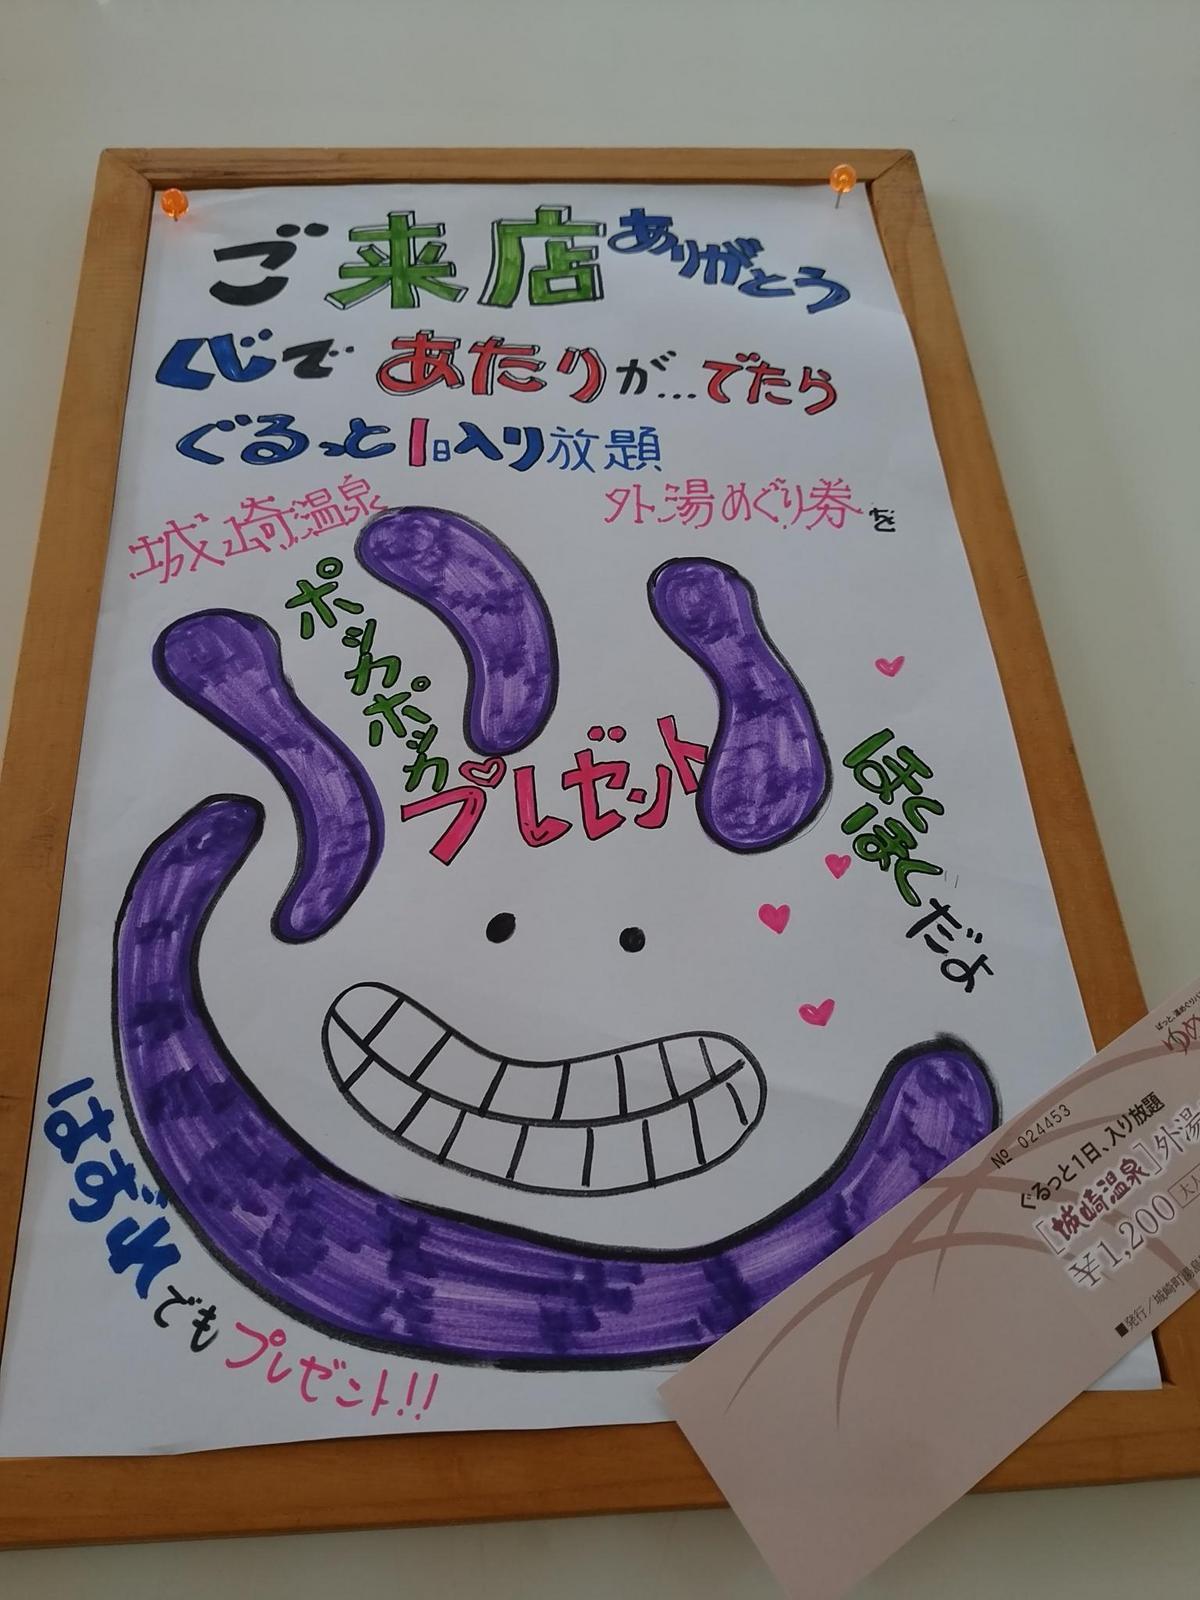 ご来店ありがとう
くじであたりが…でたら
ぐるっと1日入り放題
城崎温泉 外湯めぐり券を
ポッカポッカ
プレゼント
ほくほくだよ
はずれでも
プレゼント!!
ゆめ
№ 024453
ぐるっと1日、入り放題
[城崎温泉]外湯
¥1,200 大人
■発行/城崎町湯島